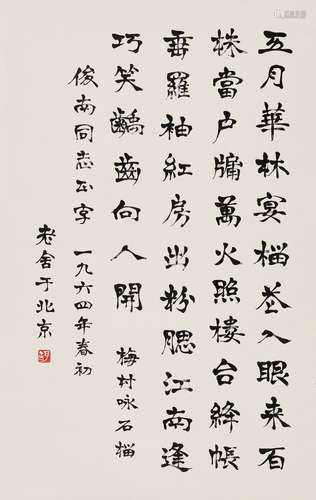 五月華林宴榴花入眼来百
株當户牖萬火照樓台絳帳
垂羅袖紅房出粉腮江南逢
巧笑齲齒向人開 梅村咏石榴
俊南同志正字 一九六四年春初
老舍于北京